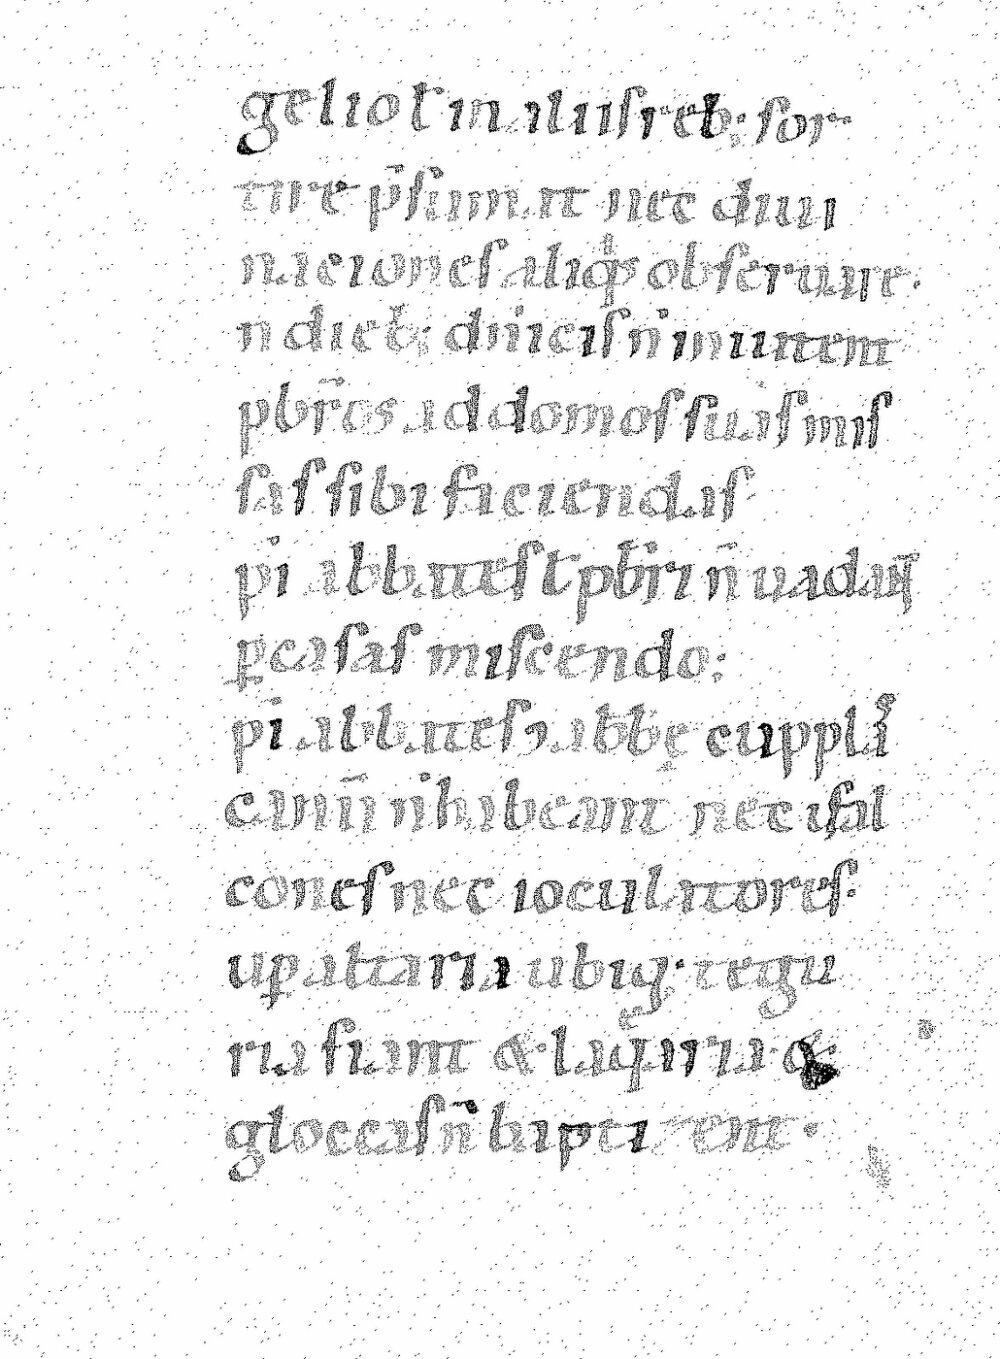 geliot̄ in aliisreb; sor
tire p̄sumat nec diui
nacionesaliq̄s obseruare.
ndieb; dn̄icis n̄inuitent
pbr̄os addomossuas mis
sas sibi faciendas
pi abbatesł pbr̄i n̄ uadant
p casas miscendo:
pi abbates, abbę cuppli
canum n̄ habeant nec isfal
cones nec ioculatores.
up altaria ubiq; tegu
ria fiant &laq̄uria &
gloccas n̄ baptizent.